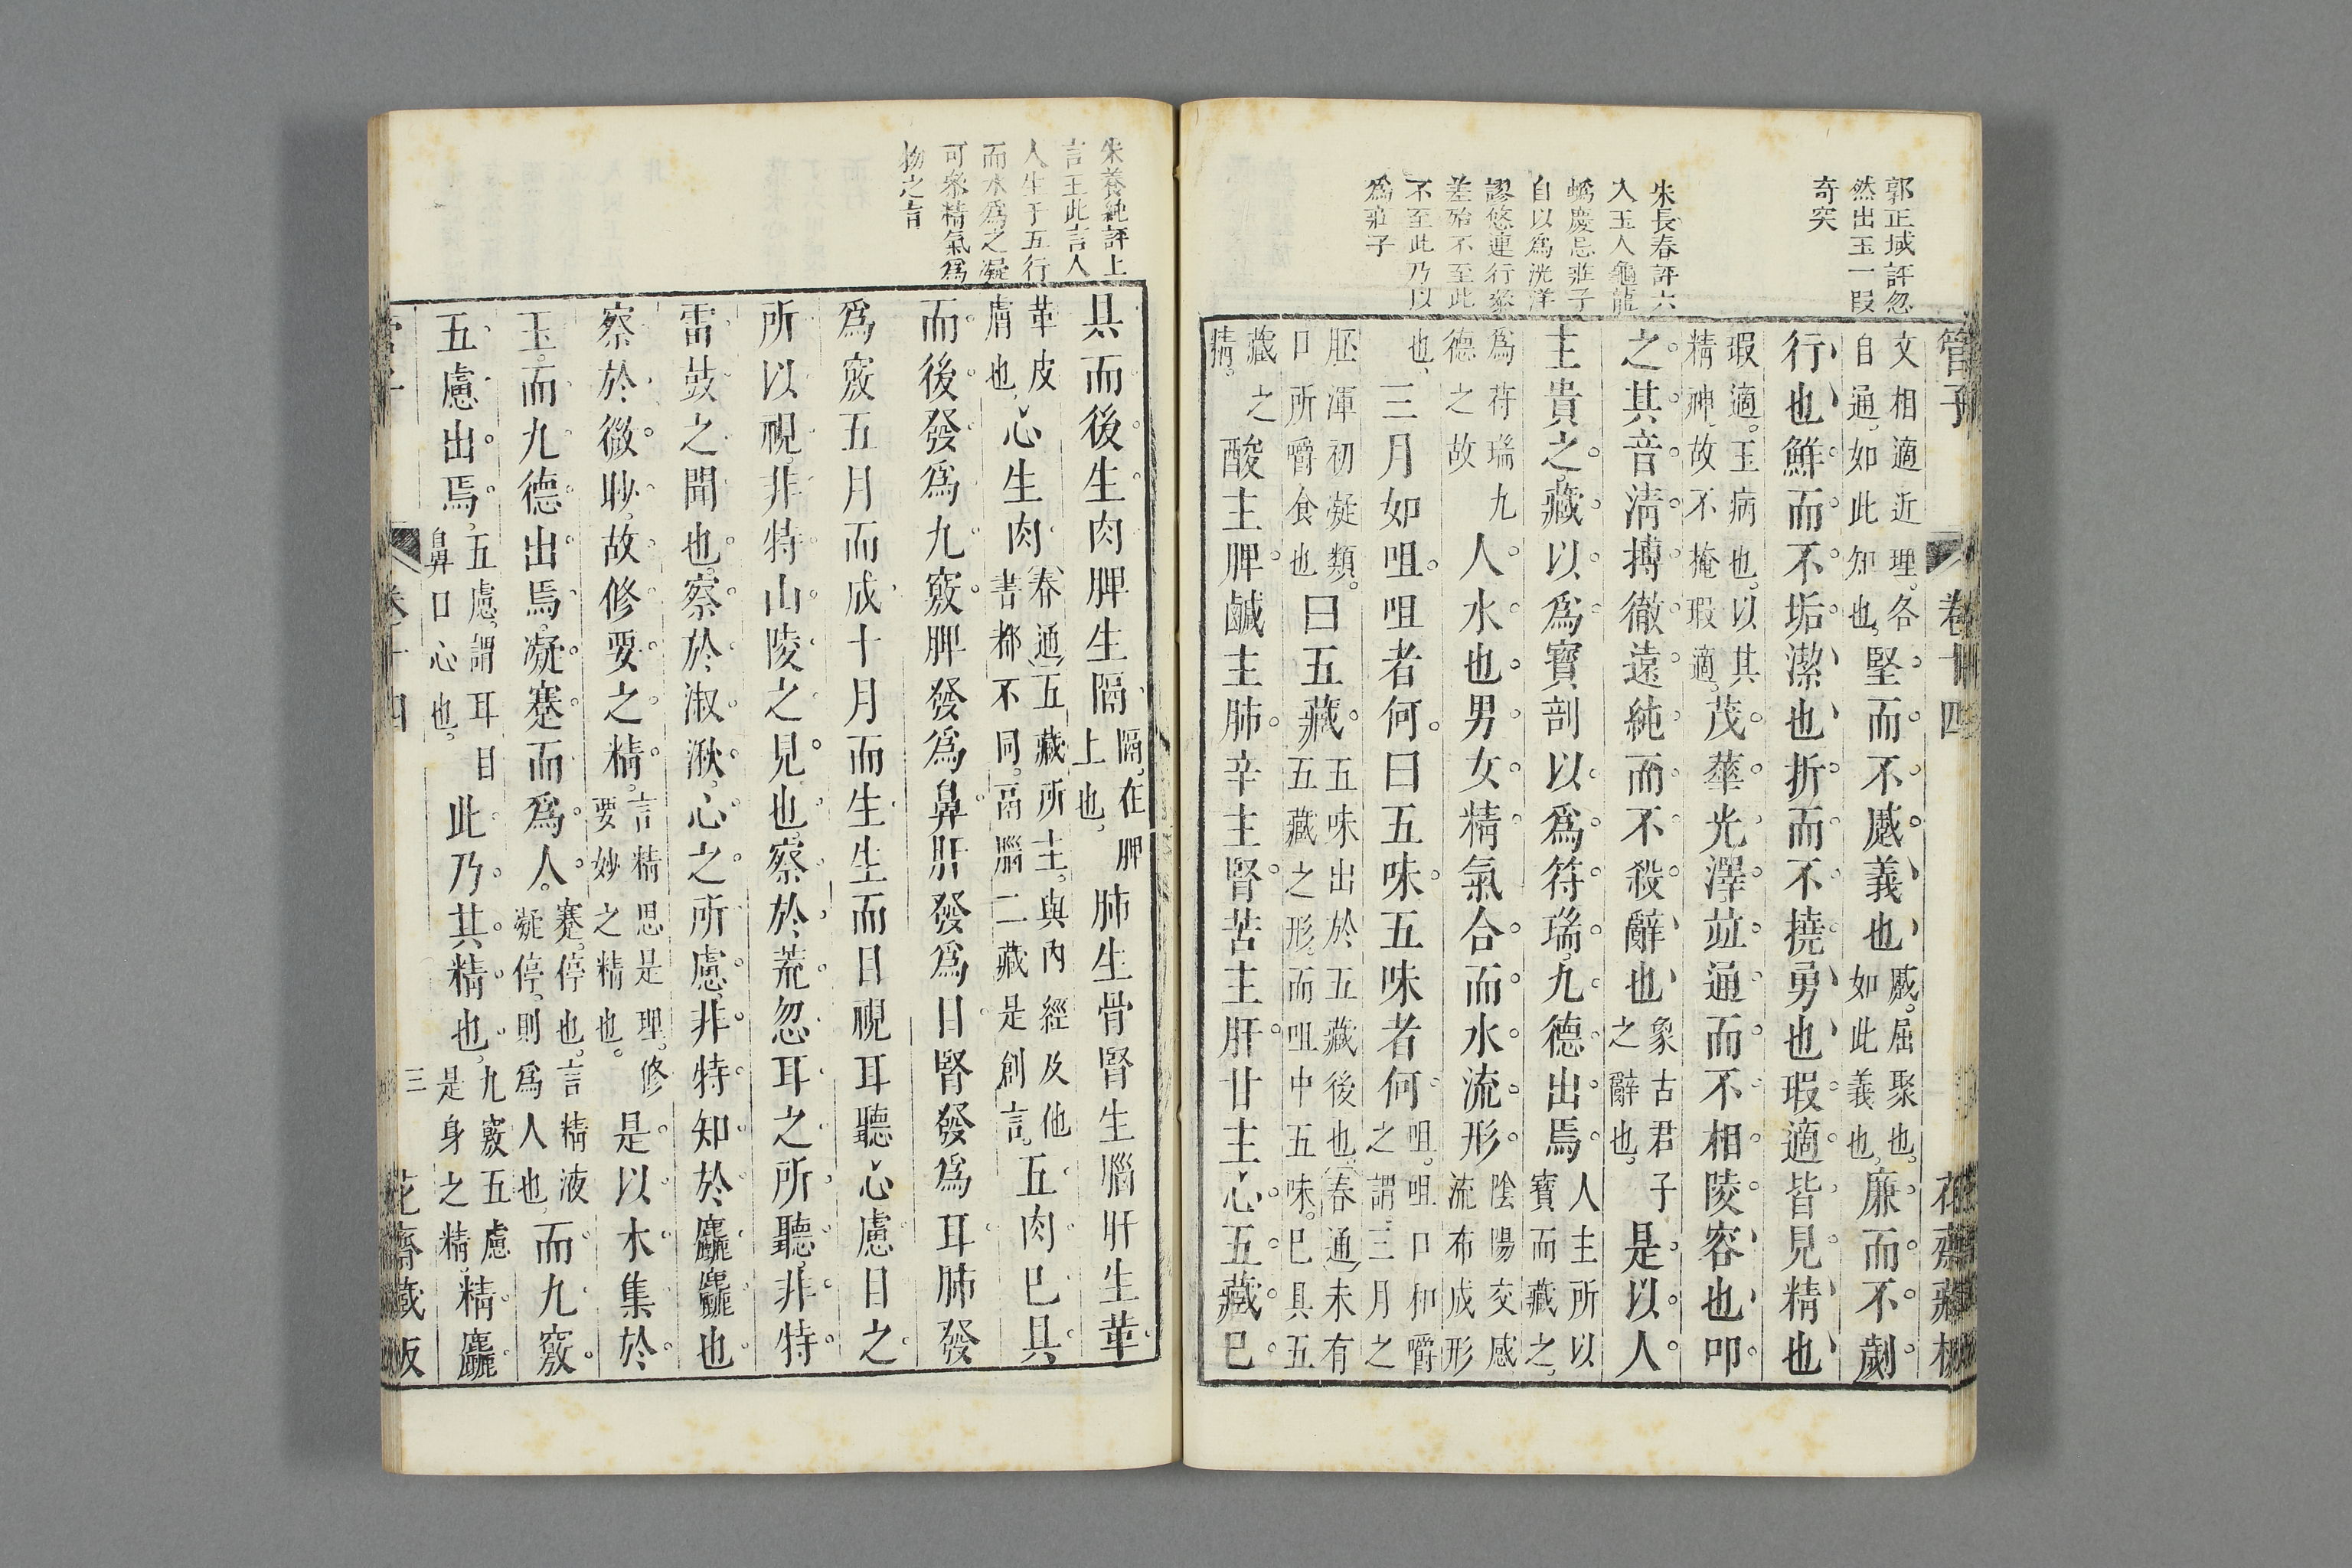 郭正域評忽
然出玉一段
奇突
朱長春評六
入玉入龜龍
蟡慶忌莊子
自以爲洸洋
謬悠連行來
差殆不至此
不至此乃以
爲莊子
管子 卷十四 花齋藏板
文相適近理。各
自通。如此知也。
堅而不慼義也
慼。屈聚也。
如此義也。
廉而不劌
行也鮮而不垢潔也折而不撓勇也瑕適皆見精也
瑕適。玉病也。以其
精神。故不掩瑕適。
茂華光澤竝通而不相陵容也叩
之其音清搏徹遠純而不殺辭也
象古君子
之辭也。
是以人
主貴之藏以爲寶剖以爲符瑞九德出焉
人主所以
寶而藏之。
爲苻瑞九
德之故
人水也男女精氣合而水流形
陰陽交感
流布成形
也。
三月如咀咀者何曰五味五味者何
咀。咀口和嚼
之謂。三月之
胚渾初凝類。
口所嚼食也
曰五藏
五味出於五藏後也。(春通)未有
五藏之形。而咀中五味。巳具五
藏之
精。
酸主脾鹹主肺辛主腎苦主肝甘主心五藏巳
朱養純評上
言玉此言人
人生于五行
而水爲之凝
可參精氣爲
物之旨
具而後生肉脾生隔
隔。在脾
上也。
肺生骨腎生腦肝生革
革皮
膚也。
心生肉
(春通)五藏所主。與內經及他
書都不同。鬲腦二藏是創言。
五肉巳具
而後發爲九竅脾發爲鼻肝發爲目腎發爲耳肺發
爲竅五月而成十月而生生而目視耳聽心慮目之
所以視非特山陵之見也察於荒忽耳之所聽非特
雷鼓之聞也察於淑湫心之所慮非特知於麤麤也
察於微眇故修要之精
言精思是理。修
要妙之精也。
是以水集於
玉而九德出焉凝蹇而爲人
蹇。停也。言精液
凝停。則爲人也。
而九竅
五慮出焉
五慮。謂耳目
鼻口心也。
此乃其精也
九竅五慮
是身之精。
精麤
管子 卷十四 三 花齋藏板